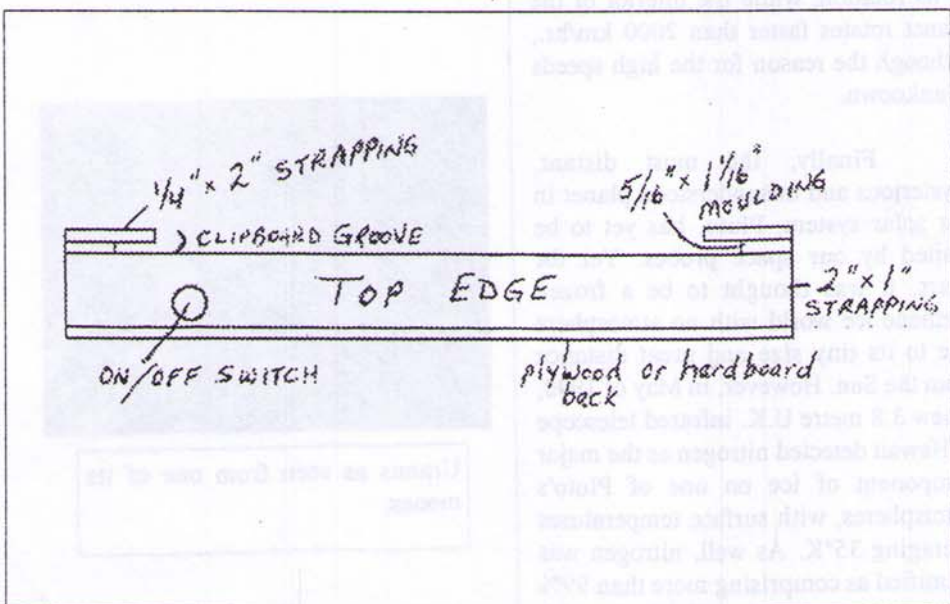 1/4" x 2" STRAPPING
5/16" 1 1/16"
MOULDING
CLIPBOARD GROOVE
TOP EDGE
2" x 1"
STRAPPING
ON/OFF SWITCH
plywood or hardboard
back